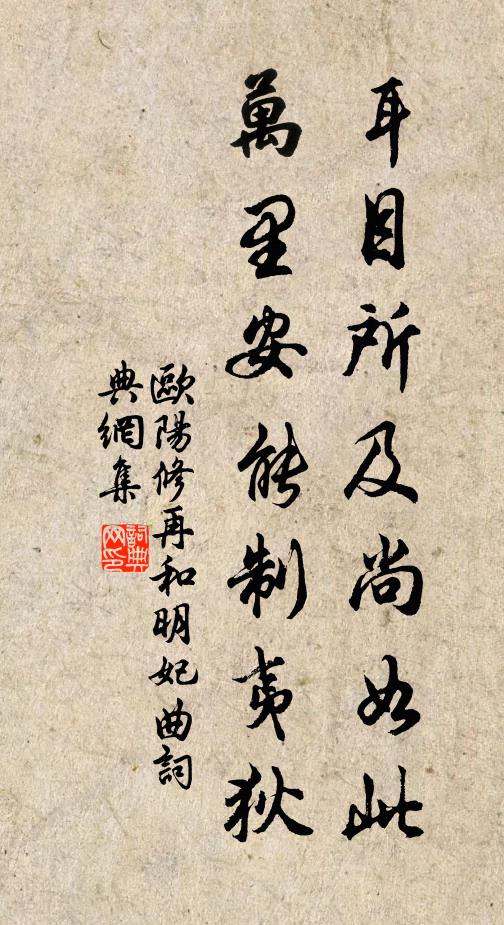 耳目所及尚如此
萬里安能制夷狄
歐陽修再和明妃曲詞
典網集
詞典
网印